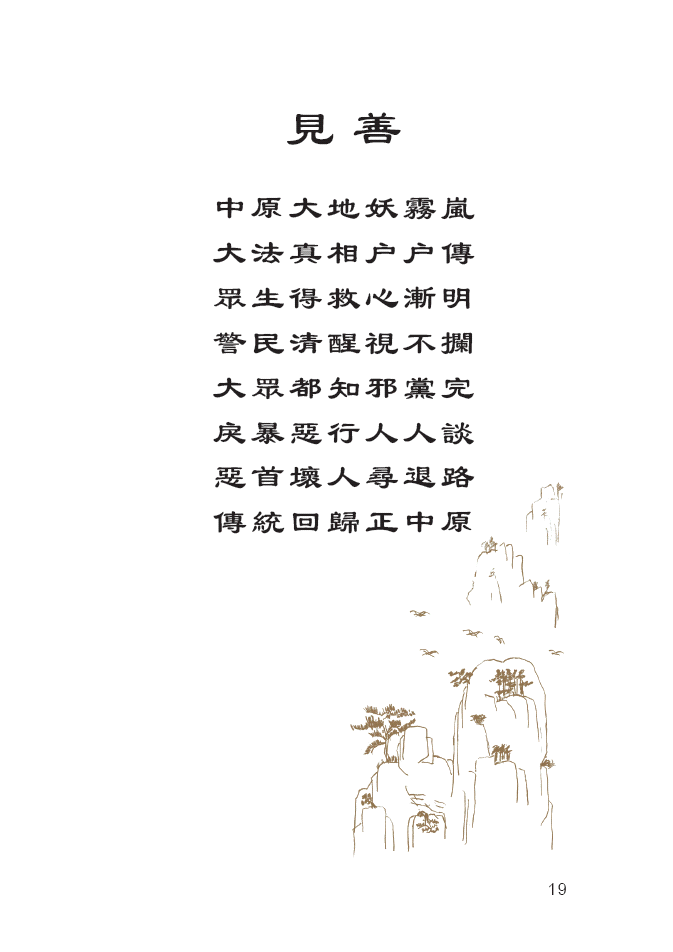 見善
中原大地妖霧嵐
大法真相户户傳
眾生得救心漸明
警民清醒視不攔
大眾都知邪黨完
戾暴惡行人人談
惡首壞人尋退路
傳統回歸正中原
19